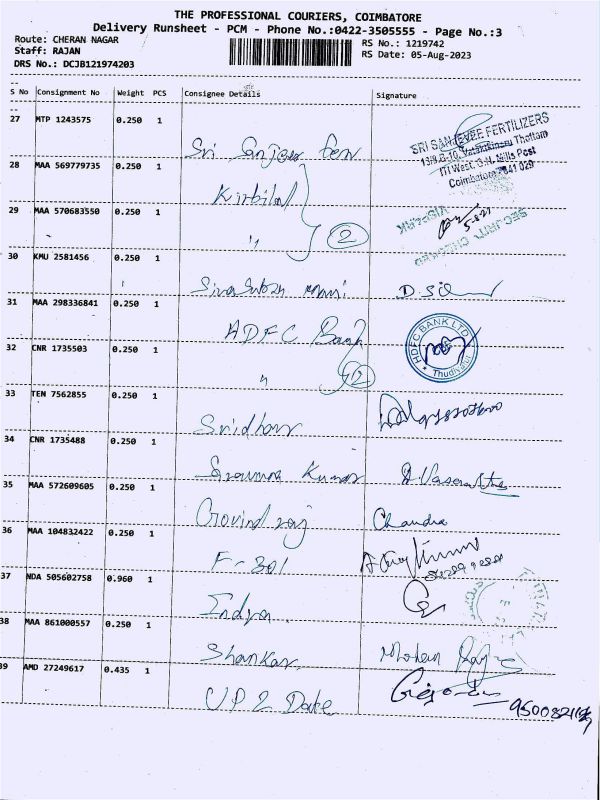 THE PROFESSIONAL COURIERS, COIMBATORE
Delivery Runsheet - PCM - Phone No.:0422-3505555 - Page No.:3
Route: CHERAN NAGAR
RS No.: 1219742
Staff: RAJAN
RS Date: 05-Aug-2023
DRS No.: DCJB121974203
S No Consignment No Weight PCS Consignee Details Signature
27 MTP 1243575 0.250 1
Sri
SRI SANJEVEE FERTILIZERS
Thottam
ITI West, G.N. Mills Post
Coimbatore - 641 029
28 MAA 569779735 0.250 1
Kirbilal
29 MAA 570683550 0.250 1
" 2
5-8-23
SECURITY CHECKED
30 KMU 2581456 0.250 1
Siva
D. Sil
31 MAA 298336841 0.250 1
HDFC Bank
HDFC BANK LTD.
Thudiyalur
32 CNR 1735503 0.250 1
" 2
33 TEN 7562855 0.250 1
Sridhar
34 CNR 1735488 0.250 1
Kumar
35 MAA 572609605 0.250 1
Govindraj
Chandra
36 MAA 104832422 0.250 1
F-301
37 NDA 505602758 0.960 1
Indya
38 MAA 861000557 0.250 1
Shankar
Mohan Raj
39 AMD 27249617 0.435 1
UP 2 Date